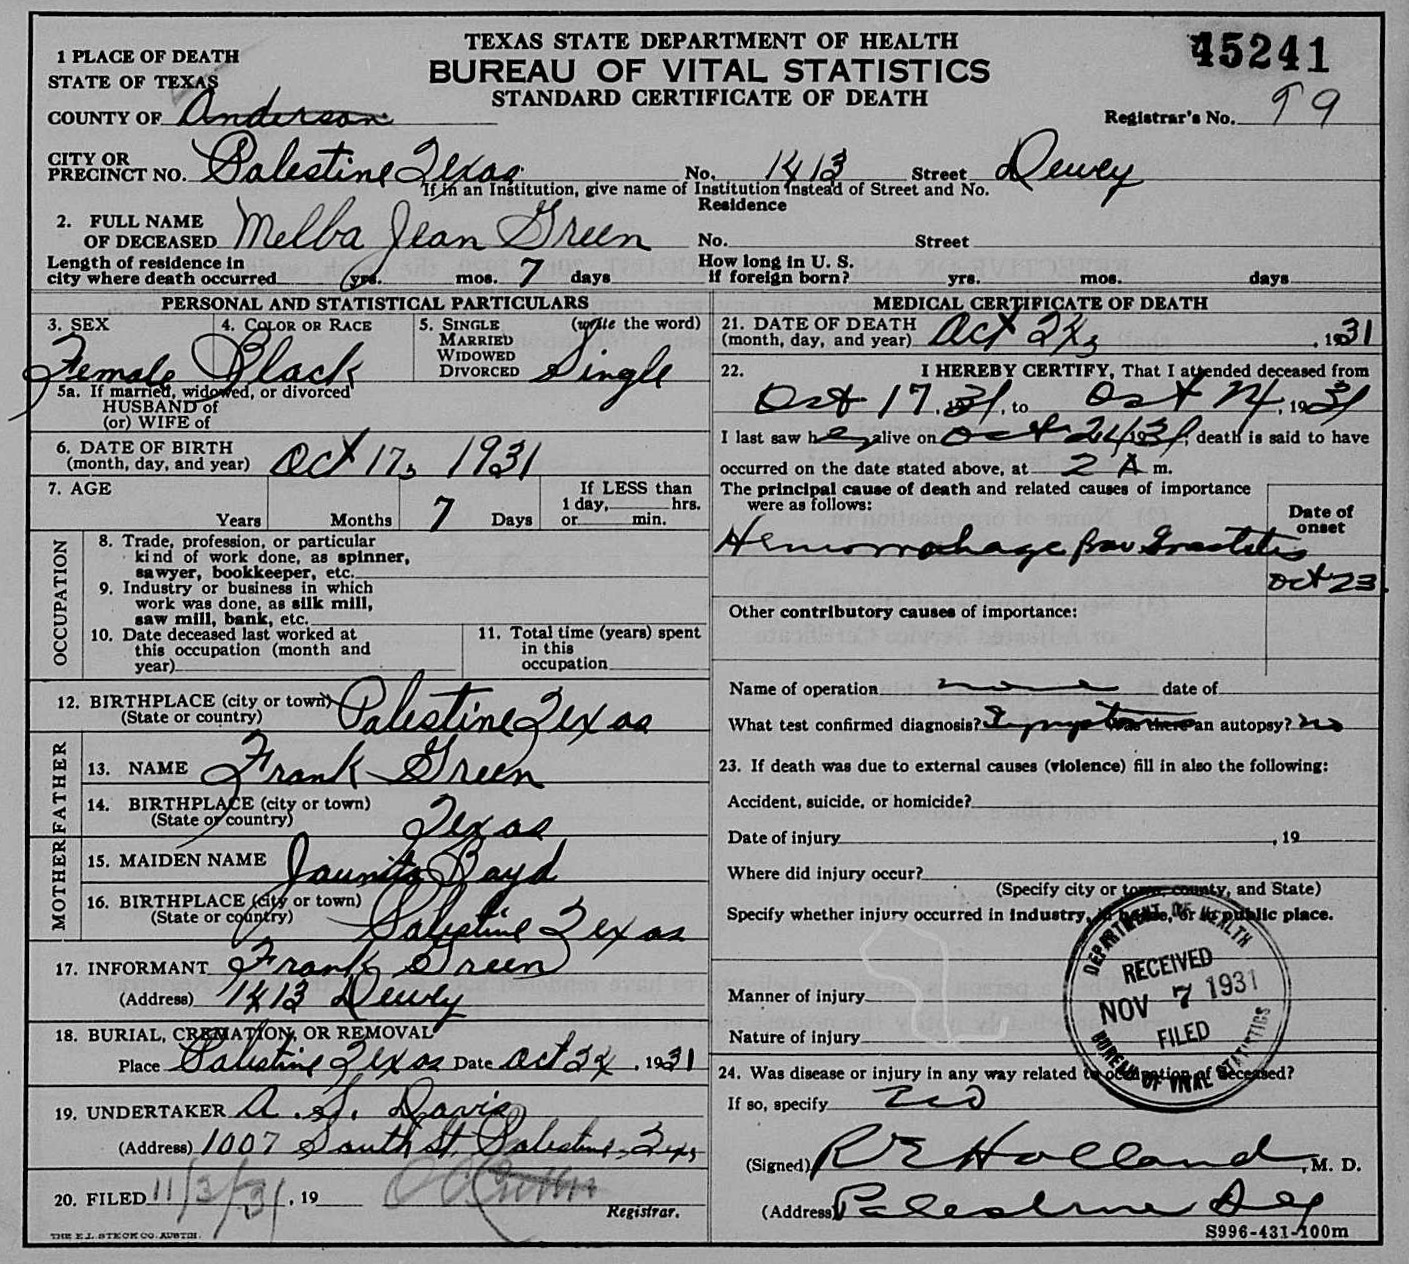 TEXAS STATE DEPARTMENT OF HEALTH
BUREAU OF VITAL STATISTICS
STANDARD CERTIFICATE OF DEATH
45241
1 PLACE OF DEATH
STATE OF TEXAS
COUNTY OF Anderson
Registrar's No. 99
CITY OR PRECINCT NO. Palestine Texas No. 1413 Street Dewey
If in an Institution, give name of Institution instead of Street and No.
Residence
2. FULL NAME OF DECEASED Melba Jean Green No. Street
Length of residence in city where death occurred yrs. mos. 7 days How long in U. S. if foreign born? yrs. mos. days
PERSONAL AND STATISTICAL PARTICULARS
3. SEX Female
4. COLOR OR RACE Black
5. SINGLE MARRIED WIDOWED DIVORCED (write the word) Single
5a. If married, widowed, or divorced
HUSBAND of
(or) WIFE of
6. DATE OF BIRTH (month, day, and year) Oct 17, 1931
7. AGE Years Months 7 Days If LESS than 1 day, hrs. or min.
OCCUPATION
8. Trade, profession, or particular
kind of work done, as spinner,
sawyer, bookkeeper, etc.
9. Industry or business in which
work was done, as silk mill,
saw mill, bank, etc.
10. Date deceased last worked at
this occupation (month and
year)
11. Total time (years) spent
in this
occupation
12. BIRTHPLACE (city or town) (State or country) Palestine Texas
FATHER
13. NAME Frank Green
14. BIRTHPLACE (city or town) (State or country) Texas
MOTHER
15. MAIDEN NAME Jaunita Boyd
16. BIRTHPLACE (city or town) (State or country) Palestine Texas
17. INFORMANT Frank Green
(Address) 1413 Dewey
18. BURIAL, CREMATION, OR REMOVAL
Place Palestine Texas Date Oct 24, 1931
19. UNDERTAKER A. S. Davis
(Address) 1007 South St, Palestine, Tex,
20. FILED 11/3/31, 19
Registrar.
THE E.L. STECK CO. AUSTIN.
MEDICAL CERTIFICATE OF DEATH
21. DATE OF DEATH (month, day, and year) Oct 24, 1931
22. I HEREBY CERTIFY, That I attended deceased from
Oct 17, 1931, to Oct 24, 1931
I last saw her alive on Oct 24 1931, death is said to have
occurred on the date stated above, at 2 A m.
The principal cause of death and related causes of importance
were as follows:
Date of onset
Hemorrohage from
Oct 23
Other contributory causes of importance:
Name of operation none date of
What test confirmed diagnosis? Symptoms Was there an autopsy? no
23. If death was due to external causes (violence) fill in also the following:
Accident, suicide, or homicide?
Date of injury , 19
Where did injury occur?
(Specify city or town, county, and State)
Specify whether injury occurred in industry, in home, or in public place.
Manner of injury
Nature of injury
DEPARTMENT OF HEALTH
RECEIVED
NOV 7 1931
FILED
BUREAU OF VITAL STATISTICS
24. Was disease or injury in any way related to occupation of deceased?
If so, specify No
(Signed) R E Holland, M. D.
(Address) Palestine Tex
S996-431-100m